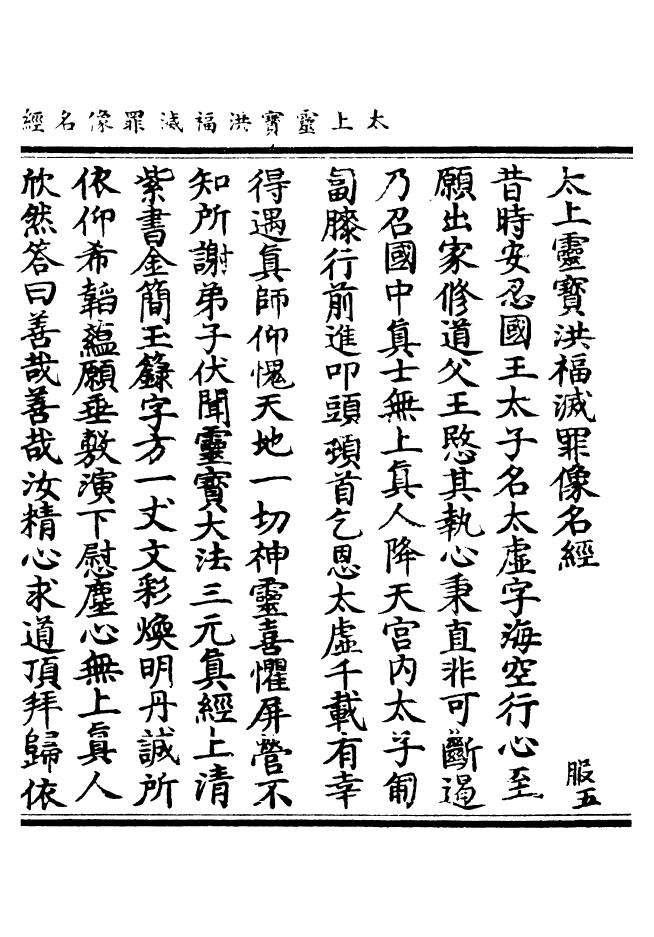 太上靈寶洪福滅罪像名經
太上靈寶洪福滅罪像名經
服五
昔時安忍國王太子名太虛字海空行心至
願出家修道父王愍其執心秉直非可斷遏
乃召國中眞士無上眞人降天宮內太子匍
匐膝行前進叩頭頓首乞恩太虛千載有幸
得遇眞師仰愧天地一切神靈喜懼屏營不
知所謝弟子伏聞靈寶大法三元眞經上清
紫書金簡玉籙字方一丈文彩煥明丹誠所
依仰希韜蘊願垂敷演下慰塵心無上眞人
欣然答曰善哉善哉汝精心求道頂拜歸依